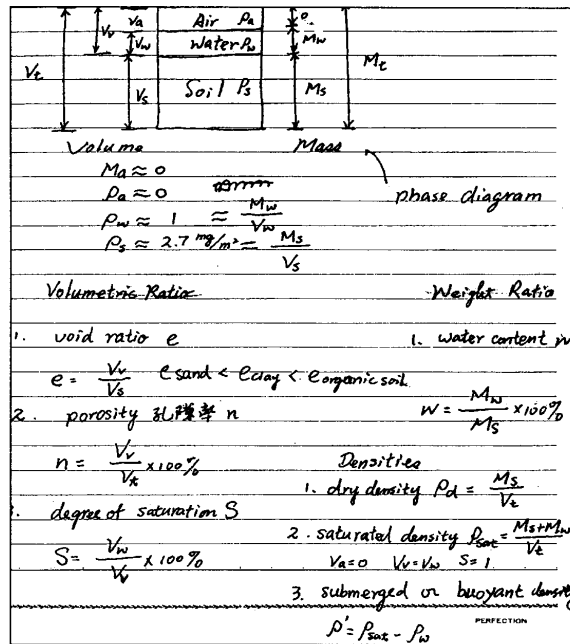 Va Air ρa 0
Vv Vw Water ρw Mw
Vt Vs Soil ρs Ms Mt
Volume Mass
Ma ≈ 0
phase diagram
ρa ≈ 0
ρw ≈ 1 ≈ Mw/Vw
ρs ≈ 2.7 mg/m³ = Ms/Vs
Volumetric Ratio Weight Ratio
1. void ratio e 1. water content w
e = Vv/Vs e sand < e clay < e organic soil
2. porosity 孔隙率 n w = Mw/Ms ×100%
n = Vv/Vt ×100% Densities
1. dry density ρd = Ms/Vt
. degree of saturation S
2. saturated density ρsat = Ms+Mw/Vt
S = Vw/Vv ×100% Va=0 Vv=Vw S=1
3. submerged or buoyant density
PERFECTION
ρ' = ρsat - ρw